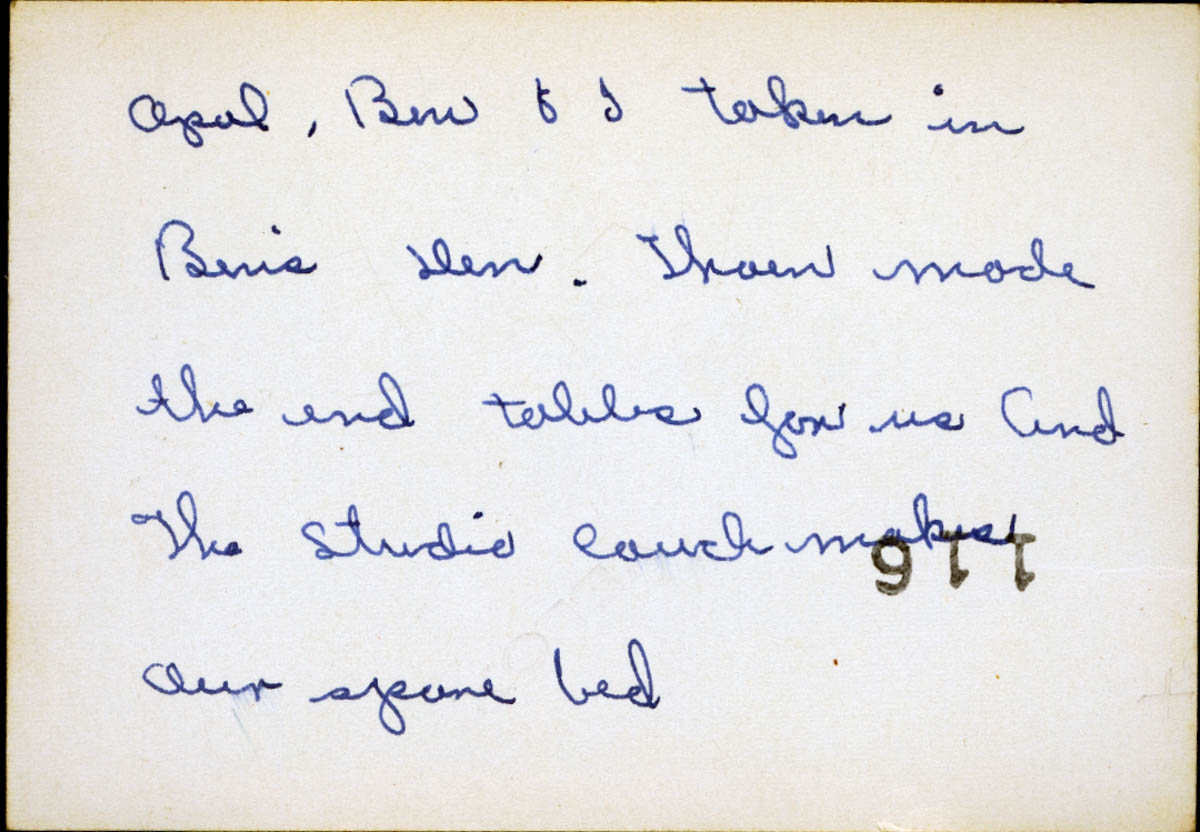 Opal, Ben & I taken in
Ben's den. Thoen made
the end tables for us and
The studio couch makes
our spare bed
116